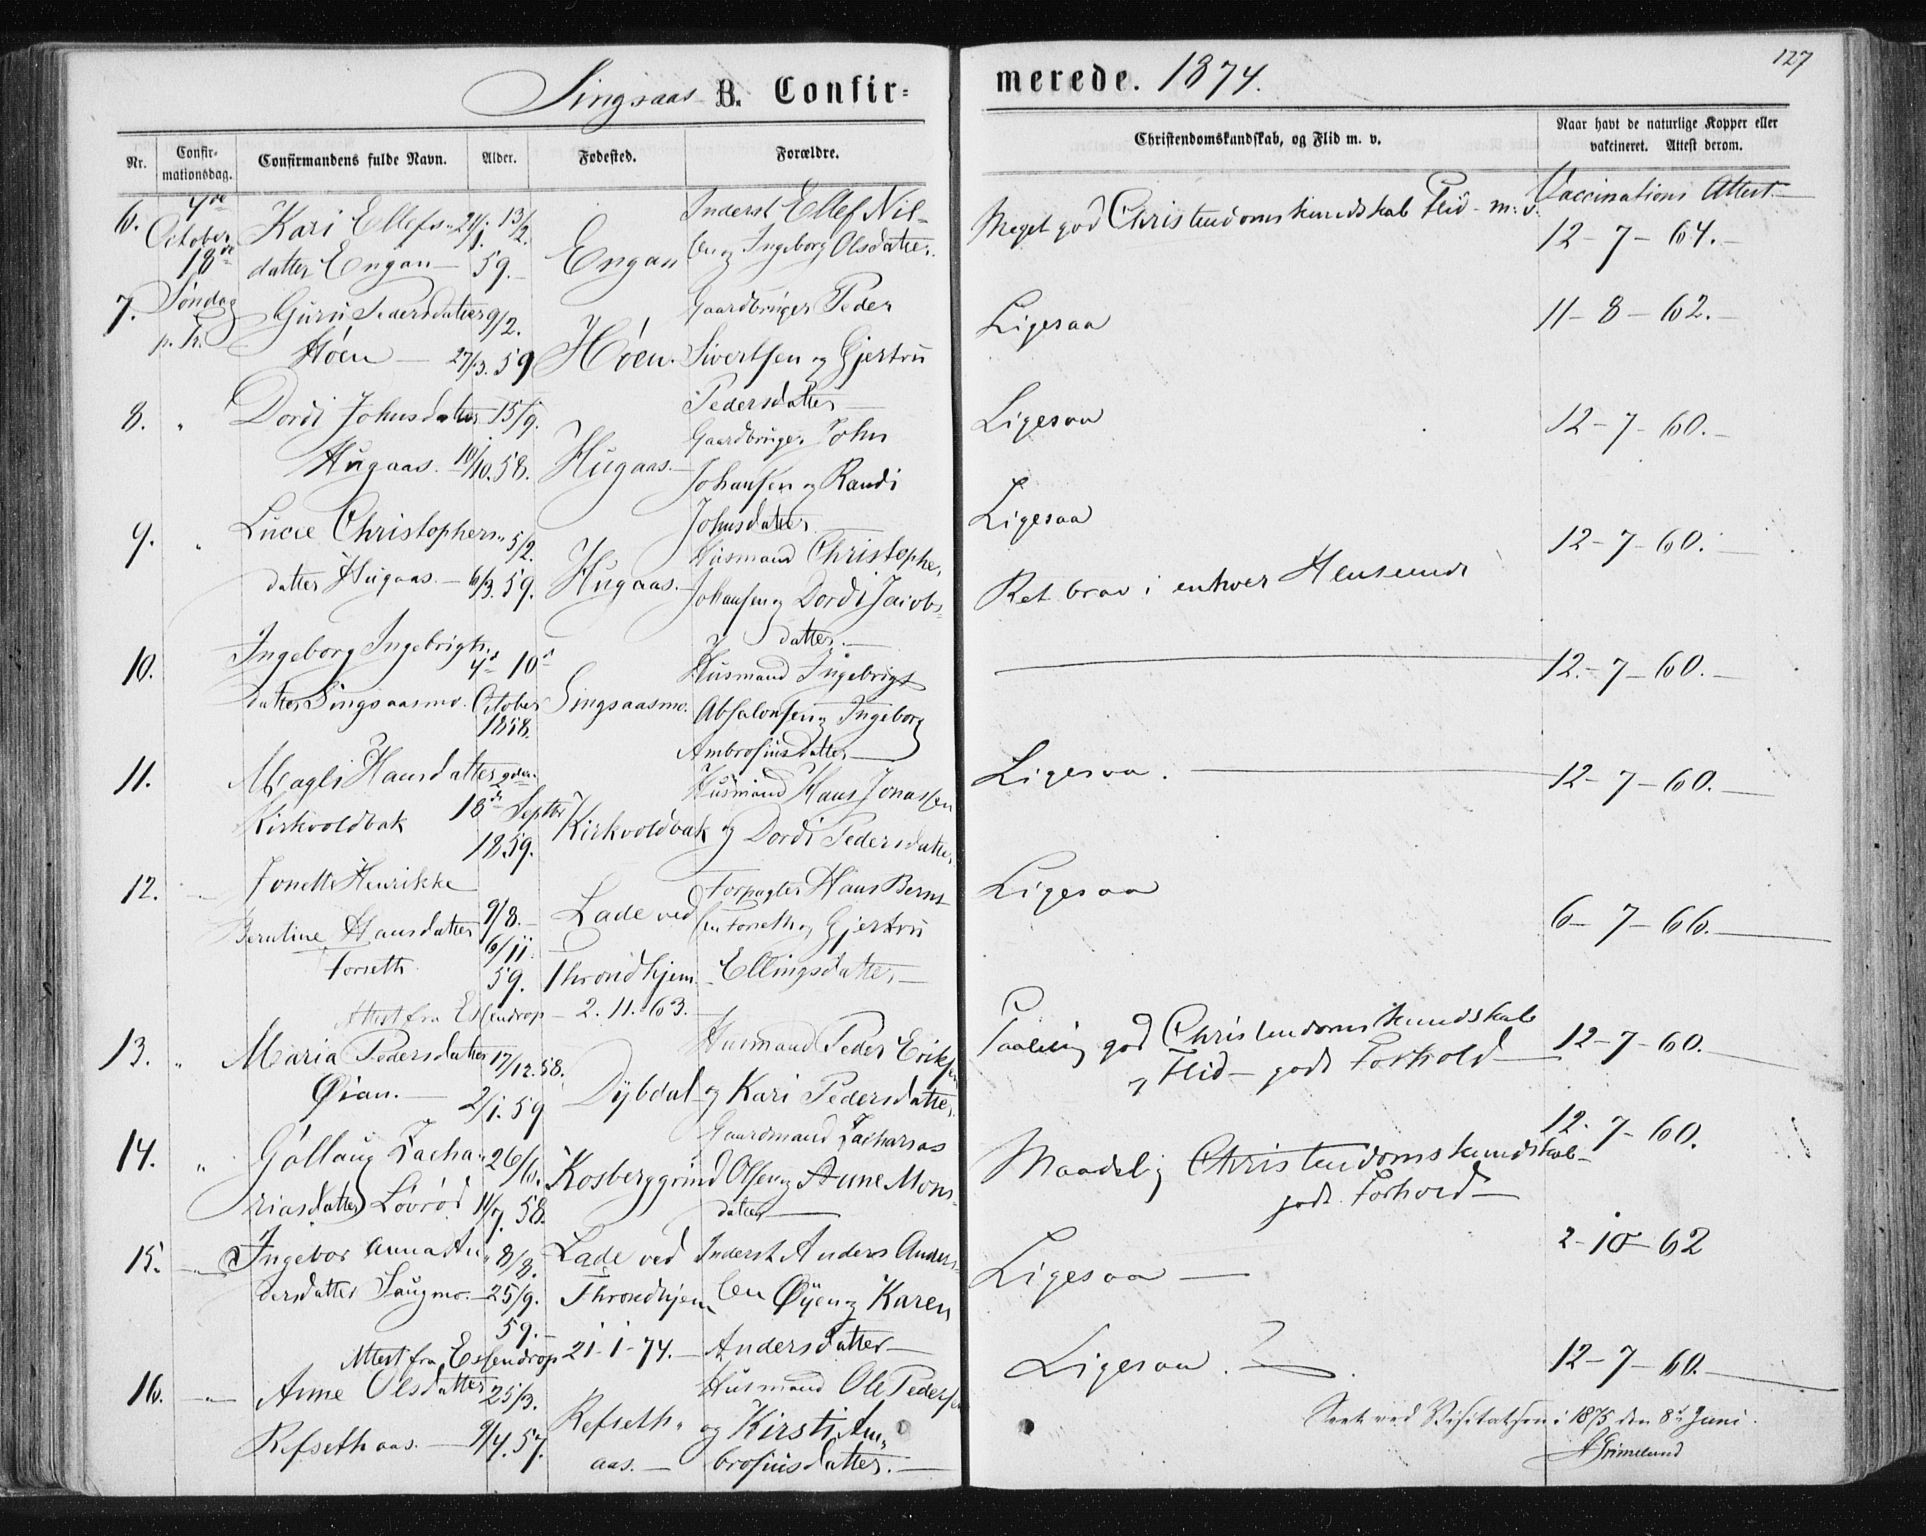 127
Singsaas B. Confir-
merede. 1874.
Nr.
Confir-
mationsdag.
Confirmandens fulde Navn.
Alder.
Fødested.
Forældre.
Christendomskundskab, og Flid m. v.
Naar havt de naturlige Kopper eller
vakcineret. Attest derom.
Vaccinations Attest
6.
October
18de
Søndag
p. Tr.
Kari Ellefs- 21/1 13/2.
datter Engan 59.
Engan
Inderst Ellef Nil-
sen og Ingeborg Olsdatter.
Meget god Christendomskundskab Flid m. v.
12-7-64.
7.
Guru Pedersdatter 9/2.
Høen 27/3. 59
Høen.
Gaardbruger Peder
Sivertsen og Gjertru
Pedersdatter
Ligesaa
11-8-62.
8. "
Dordi Johnsdatter 15/9.
Hugaas. 10/10. 58.
Hugaas.
Gaardbruger John
Johansen og Randi
Johnsdatter
Ligesaa
12-7-60.
9. "
Lucie Christophers- 5/2.
datter Hugaas. 6/3. 59.
Hugaas.
Husmand Christopher
Johansen og Dordi Jacobs-
datter.
Ligesaa
Ret brav i enhver Henseende
12-7-60.
10.
Ingeborg Ingebrigts-
datter Singsaasmo.
4d 10d
October
1858.
Singsaasmo.
Husmand Ingebrigt
Absalonsen og Ingeborg
Ambrosiusdatter
12-7-60.
11.
Magli Hansdatter
Kirkvoldbak
18d Septbr
1859.
Kirkvoldbak
Husmand Hans Jonassen
og Dordi Pedersdatter
Ligesaa.
12-7-60.
12. "
Jonette Henrikke
Berntine Hansdatter
Forseth
9/8.
6/11.
59.
Lade ved
Throndhjem
Forpagter Hans Bernt-
sen Forseth og Gjertru
Ellingsdatter
Ligesaa
6-7-66.
Attest fra Essendrop 2. 11. 63.
13. "
Maria Pedersdatter 17/12. 58.
Øian. 2/1. 59
Dybdal
Husmand Peder Eriksen
og Kari Pedersdatter
Taalelig god Christendomskundskab
og Flid - godt Forhold
12-7-60.
14. "
Gollaug Zacha- 26/6.
riasdatter Lovrød 11/7. 58.
Kosberggrind
Gaardmand Zacharias
Olsen og Anne Mons-
datter
Maadelig Christendomskundskab
godt Forhold
12-7-60.
15. "
Ingebor Anna An- 8/8.
dersdatter Saugmo. 25/9.
59.
Lade ved
Throndhjem
Inderst Anders Anders-
sen Øyen og Karen
Andersdatter
Ligesaa
2-10-62
Attest fra Essendrop 21-1-74.
16. "
Anne Olsdatter 25/3.
Refsethaas. 9/4. 57.
Refseth-
aas.
Husmand Ole Pedersen
og Kirsti Am-
brosiusdatter.
Ligesaa.
12-7-60.
Seet ved Visitatsen i 1875 den 8d Juni.
A Grimelund